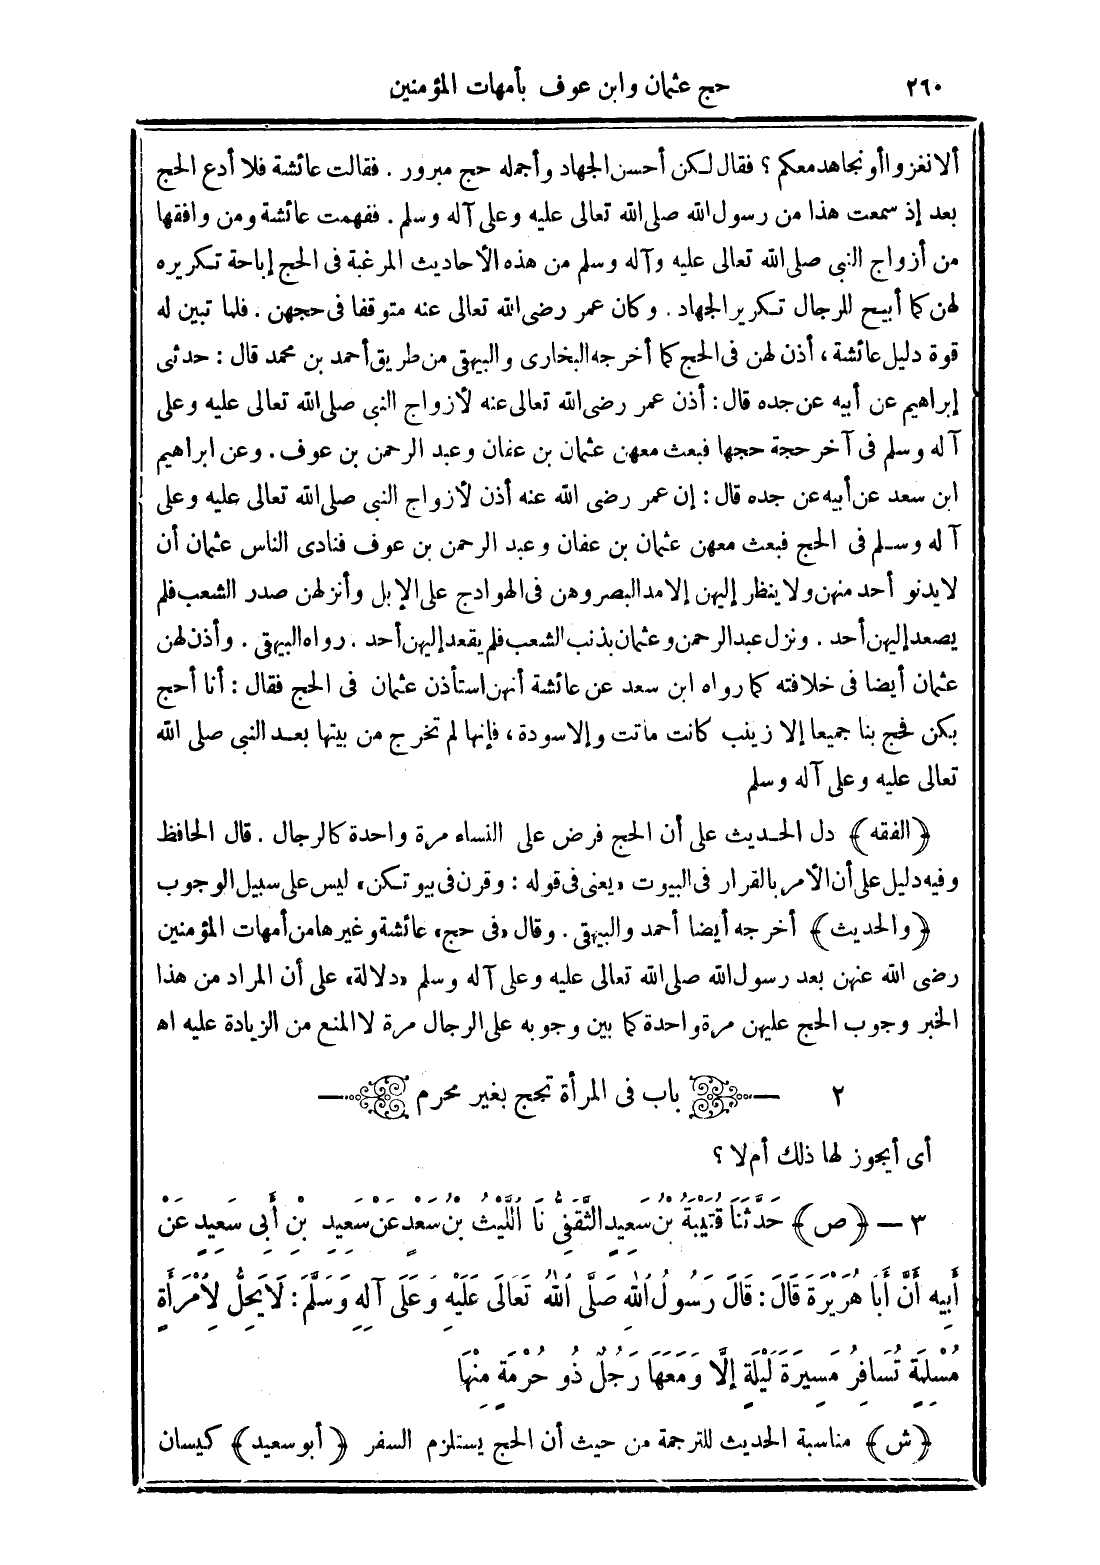 ٢٦٠ حج عثمان وابن عوف بأمهات المؤمنين
ألا نغزوا أو نجاهد معكم ؟ فقال لكن أحسن الجهاد وأجمله حج مبرور . فقالت عائشة فلا أدع الحج
بعد إذ سمعت هذا من رسول الله صلى الله تعالى عليه وعلى آله وسلم . ففهمت عائشة ومن وافقها
من أزواج النبى صلى الله تعالى عليه وآله وسلم من هذه الأحاديث المرغبة فى الحج إباحة تكريره
لهن كما أبيح للرجال تكرير الجهاد . وكان عمر رضى الله تعالى عنه متوقفا فى حجهن . فلما تبين له
قوة دليل عائشة ، أذن لهن فى الحج كما أخرجه البخارى والبيهقى من طريق أحمد بن محمد قال : حدثنى
إبراهيم عن أبيه عن جده قال : أذن عمر رضى الله تعالى عنه لأزواج النبى صلى الله تعالى عليه وعلى
آله وسلم فى آخر حجة حجها فبعث معهن عثمان بن عفان وعبد الرحمن بن عوف . وعن ابراهيم
ابن سعد عن أبيه عن جده قال : إن عمر رضى الله عنه أذن لأزواج النبى صلى الله تعالى عليه وعلى
آله وسلم فى الحج فبعث معهن عثمان بن عفان وعبد الرحمن بن عوف فنادى الناس عثمان أن
لا يدنو أحد منهن ولا ينظر إليهن إلا مد البصر وهن فى الهوادج على الإبل وأنزلهن صدر الشعب فلم
يصعد إليهن أحد . ونزل عبد الرحمن وعثمان بذنب الشعب فلم يقعد إليهن أحد . رواه البيهقى . وأذن لهن
عثمان أيضا فى خلافته كما رواه ابن سعد عن عائشة أنهن استأذن عثمان فى الحج فقال : أنا أحج
بكن فحج بنا جميعا إلا زينب كانت ماتت وإلا سودة ، فإنها لم تخرج من بيتها بعد النبى صلى الله
تعالى عليه وعلى آله وسلم
﴿الفقه﴾ دل الحديث على أن الحج فرض على النساء مرة واحدة كالرجال . قال الحافظ
وفيه دليل على أن الأمر بالقرار فى البيوت «يعنى فى قوله : وقرن فى بيوتكن» ليس على سبيل الوجوب
﴿والحديث﴾ أخرجه أيضا أحمد والبيهقى . وقال «فى حج» عائشة وغيرها من أمهات المؤمنين
رضى الله عنهن بعد رسول الله صلى الله تعالى عليه وعلى آله وسلم «دلالة» على أن المراد من هذا
الخبر وجوب الحج عليهن مرة واحدة كما بين وجوبه على الرجال مرة لا المنع من الزيادة عليه اه
٢ — باب فى المرأة تحج بغير محرم —
أى أيجوز لها ذلك أم لا ؟
٣ — ﴿ص﴾ حَدَّثَنَا قُتَيْبَةُ بْنُ سَعِيدٍ الثَّقَفِىُّ نَا اللَّيْثُ بْنُ سَعْدٍ عَنْ سَعِيدِ بْنِ أَبِى سَعِيدٍ عَنْ
أَبِيهِ أَنَّ أَبَا هُرَيْرَةَ قَالَ : قَالَ رَسُولُ اللهِ صَلَّى اللهُ تَعَالَى عَلَيْهِ وَعَلَى آلِهِ وَسَلَّمَ : لَا يَحِلُّ لِامْرَأَةٍ
مُسْلِمَةٍ تُسَافِرُ مَسِيرَةَ لَيْلَةٍ إِلَّا وَمَعَهَا رَجُلٌ ذُو حُرْمَةٍ مِنْهَا
﴿ش﴾ مناسبة الحديث للترجمة من حيث أن الحج يستلزم السفر ﴿أبو سعيد﴾ كيسان